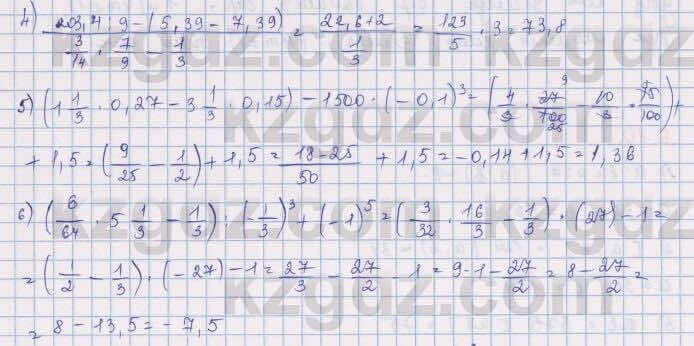 4) (203,4 : 9 - (5,39 - 7,39)) / (3/14 · 7/9 - 1/3) = (22,6+2) / (1/3) = 123/5 · 3 = 73,8
5) (1 1/3 · 0,27 - 3 1/3 · 0,15) - 1500 · (-0,1)³ = (4/3 · 27/100 - 10/3 · 15/100) +
+ 1,5 = (9/25 - 1/2) + 1,5 = (18-25)/50 + 1,5 = -0,14 + 1,5 = 1,36
6) (6/64 · 5 1/3 - 1/3) : (-1/3)³ + (-1)⁵ = (3/32 · 16/3 - 1/3) · (27) - 1 =
= (1/2 - 1/3) · (-27) - 1 = 27/3 - 27/2 - 1 = 9 - 1 - 27/2 = 8 - 27/2 =
= 8 - 13,5 = - 7,5
kzgdz.com